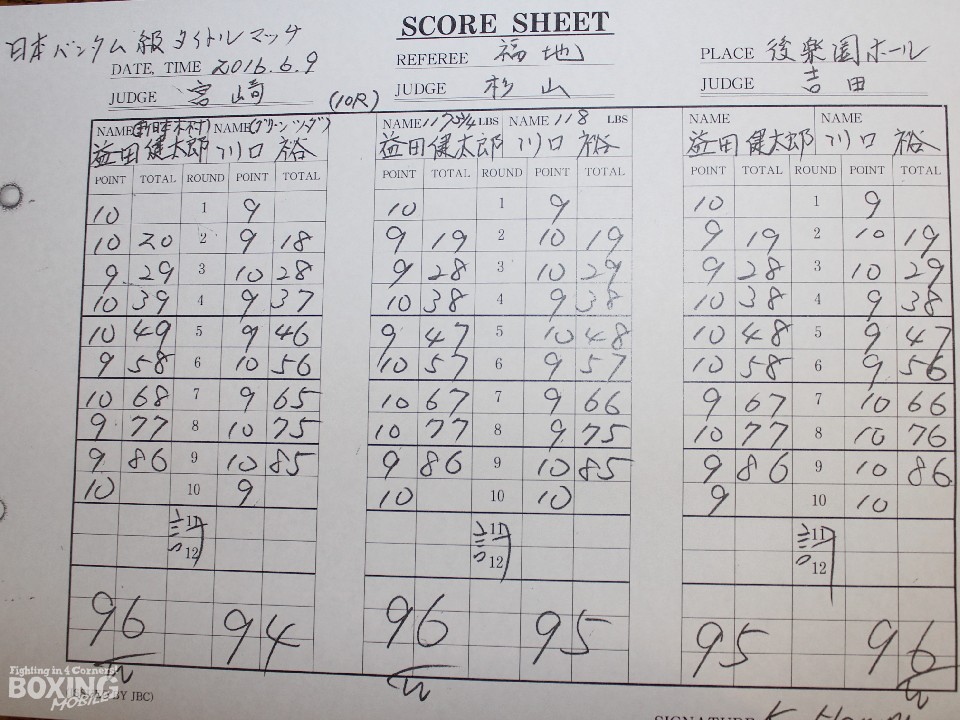 SCORE SHEET
日本バンタム級タイトルマッチ
DATE, TIME 2016.6.9 REFEREE 福地 PLACE 後楽園ホール
JUDGE 宮崎 (10R) JUDGE 杉山 JUDGE 吉田
NAME (新日本木村) NAME (グリーンツダ) NAME 117 3/4 LBS NAME 118 LBS NAME NAME
益田健太郎 川口裕 益田健太郎 川口裕 益田健太郎 川口裕
POINT TOTAL ROUND POINT TOTAL POINT TOTAL ROUND POINT TOTAL POINT TOTAL ROUND POINT TOTAL
10 1 9 10 1 9 10 1 9
10 20 2 9 18 9 19 2 10 19 9 19 2 10 19
9 29 3 10 28 9 28 3 10 29 9 28 3 10 29
10 39 4 9 37 10 38 4 9 38 10 38 4 9 38
10 49 5 9 46 9 47 5 10 48 10 48 5 9 47
9 58 6 10 56 10 57 6 9 57 10 58 6 9 56
10 68 7 9 65 10 67 7 9 66 9 67 7 10 66
9 77 8 10 75 10 77 8 9 75 10 77 8 10 76
9 86 9 10 85 9 86 9 10 85 9 86 9 10 86
10 10 9 10 10 10 9 10 10
11 11 11
12 12 12
96 94 96 95 95 96
Fighting in 4 Corners!
BOXING
MOBILE
BY JBC)
SIGNATURE